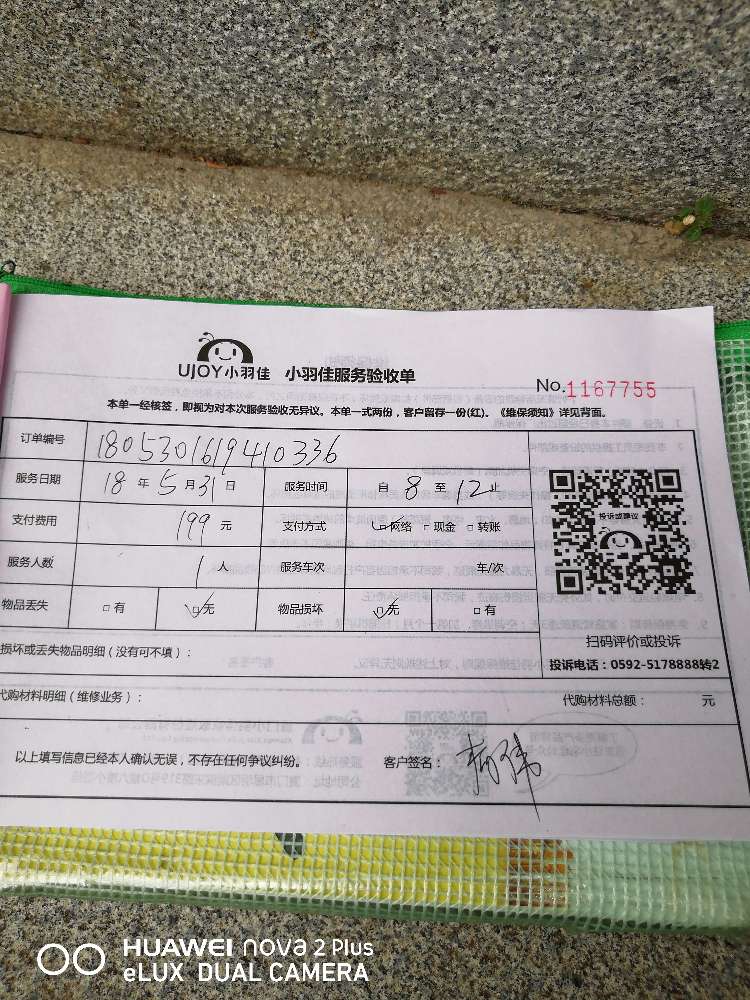 UJOY小羽佳 小羽佳服务验收单
No.1167755
本单一经核签，即视为对本次服务验收无异议。本单一式两份，客户留存一份(红)。《维保须知》详见背面。
订单编号 1805301619410336
服务日期 18 年 5 月 31 日 服务时间 自 8 至 12 止
支付费用 199 元 支付方式 网络 现金 转账
投诉或建议
服务人数 1 人 服务车次 车/次
物品丢失 有 无 物品损坏 无 有
扫码评价或投诉
损坏或丢失物品明细（没有可不填）：
投诉电话：0592-5178888转2
代购材料明细（维修业务）： 代购材料总额： 元
以上填写信息已经本人确认无误，不存在任何争议纠纷。 客户签名：
HUAWEI nova 2 Plus
eLUX DUAL CAMERA